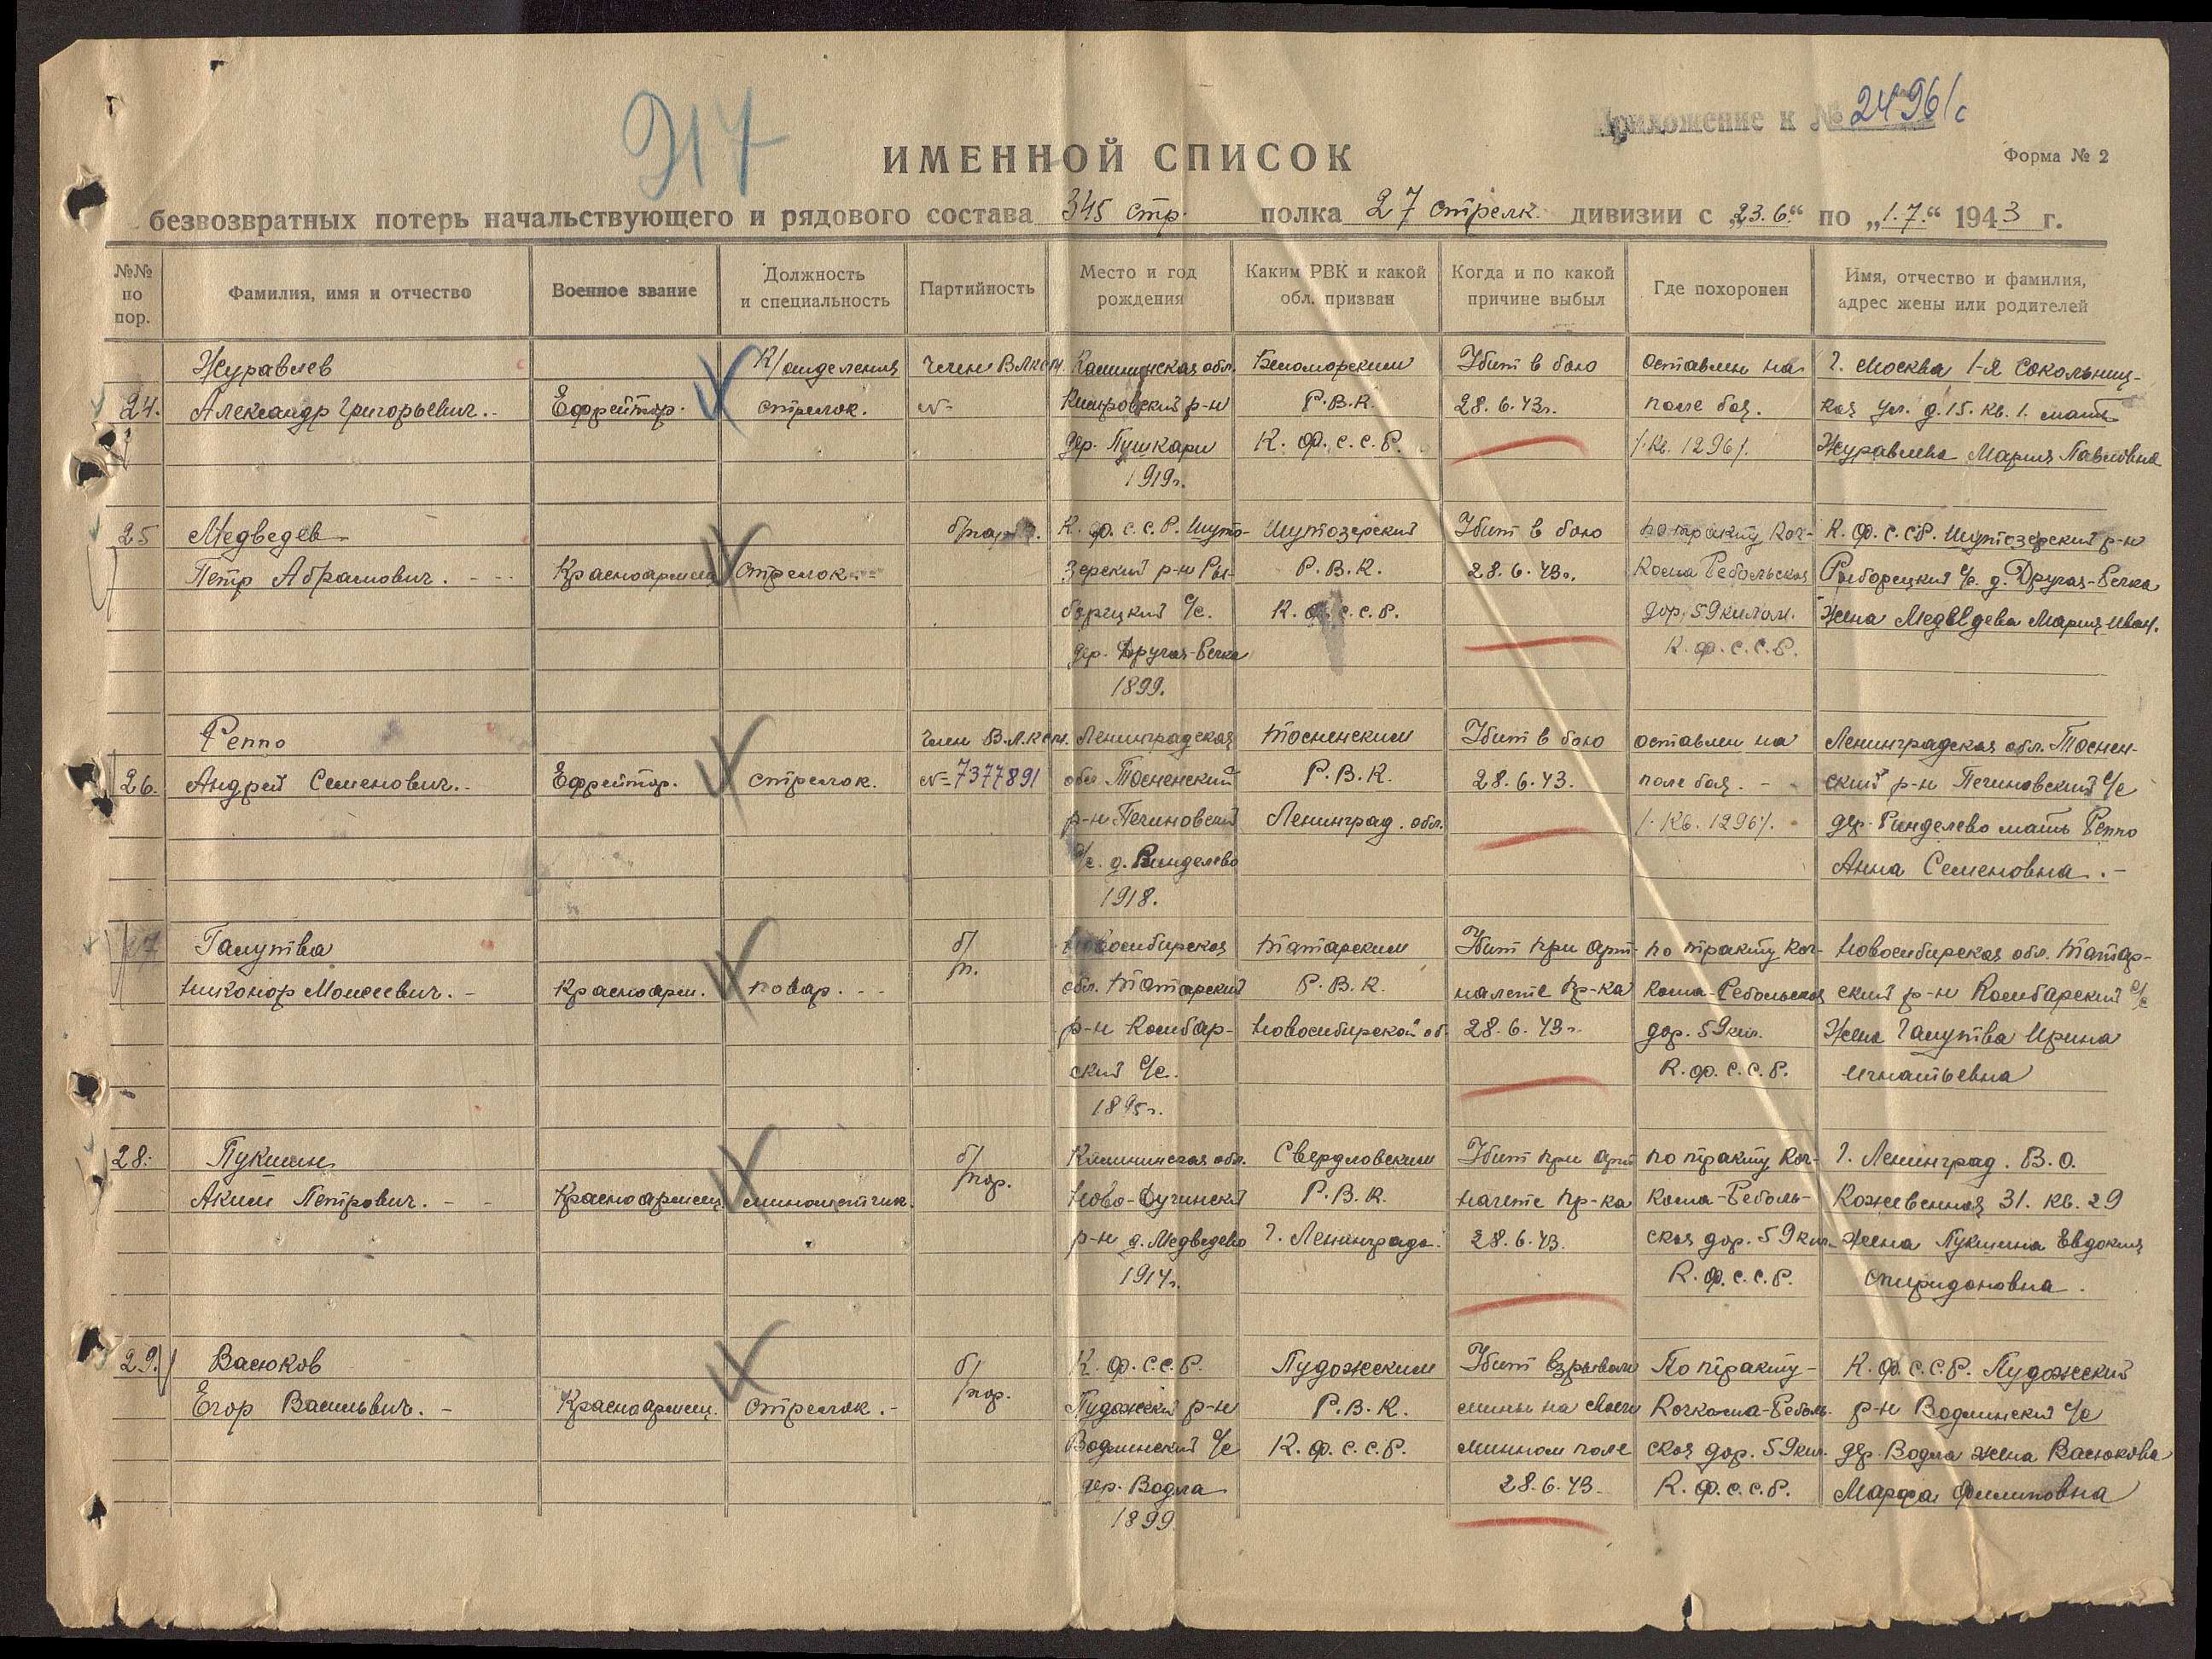 217
Приложение к № 2496/с
ИМЕННОЙ СПИСОК
Форма № 2
безвозвратных потерь начальствующего и рядового состава 345 стр. полка 27 стрелк. дивизии с „23.6.“ по „1.7.“ 1943 г.
№№ по пор.
Фамилия, имя и отчество
Военное звание
Должность и специальность
Партийность
Место и год рождения
Каким РВК и какой обл. призван
Когда и по какой причине выбыл
Где похоронен
Имя, отчество и фамилия, адрес жены или родителей
24.
Журавлев
Александр Григорьевич.
Ефрейтор.
К/отделения
стрелок.
Член ВЛКСМ.
№-
Калининская обл.
Кировский р-н
дер. Пушкари
1919г.
Беломорским
Р.В.К.
К.Ф.С.С.Р.
Убит в бою
28.6.43г.
Оставлен на
поле боя.
/.Кв. 1296/.
г. Москва 1-я Сокольниц-
кая ул. д.15. кв.1. мать
Журавлева Мария Павловна
25
Медведев
Петр Абрамович.
Красноармеец
Стрелок.
б/парт.
К.Ф.С.С.Р. Шуто-
зерский р-н Ры-
борецкий с/с.
дер. Другая-Речка
1899.
Шутозерский
Р.В.К.
К.Ф.С.С.Р.
Убит в бою
28.6.43г.
по тракту Коч-
кома Ребольская
дор. 59 килом.
К.Ф.С.С.Р.
К.Ф.С.С.Р. Шутозерский р-н
Рыборецкий с/с. д. Другая-Речка
Жена Медведева Мария Иван.
26.
Реппо
Андрей Семенович.
Ефрейтор.
стрелок.
Член В.Л.К.С.М.
№-7377891
Ленинградская
обл. Тосненский
р-н Печиновский
с/с. д. Ринделево
1918.
Тосненским
Р.В.К.
Ленинград. обл.
Убит в бою
28.6.43.
оставлен на
поле боя.
/.Кв. 1296/.
Ленинградская обл. Тоснен-
ский р-н Печиновский с/с
дер. Ринделево мать Реппо
Анна Семеновна.
27
Галутва
Никонор Моисеевич.
Красноарм.
повар.
б/
п.
Новосибирская
обл. Татарский
р-н Комбар-
ский с/с.
1895г.
Татарским
Р.В.К.
Новосибирской об.
Убит при арт-
налете пр-ка
28.6.43г.
по тракту Коч-
кома-Ребольская
дор. 59 км.
К.Ф.С.С.Р.
Новосибирская обл. Татар-
ский р-н Комбарский с/с
Жена Галутва Ирина
Игнатьевна
28.
Пукшин
Аким Петрович.
Красноармеец
минометчик.
б/
пар.
Калининская обл.
Ново-Дугинский
р-н д. Медведево
1914г.
Свердловским
Р.В.К.
г. Ленинграда.
Убит при арт
налете пр-ка
28.6.43.
по тракту Коч-
кома-Реболь-
ская дор. 59 км.
К.Ф.С.С.Р.
г. Ленинград. В.О.
Кожевенная 31. кв. 29
жена Пукшина Евдокия
Спиридоновна.
29.
Васюков
Егор Васильевич.
Красноармеец.
Стрелок.
б/
пар.
К.Ф.С.С.Р.
Пудожский р-н
Водлинский с/с
дер. Водла
1899
Пудожским
Р.В.К.
К.Ф.С.С.Р.
Убит взрывом
мины на своем
минном поле
28.6.43.
По тракту-
Кочкома-Реболь-
ская дор. 59 км.
К.Ф.С.С.Р.
К.Ф.С.С.Р. Пудожский
р-н Водлинский с/с
дер. Водла жена Васюкова
Марфа Филиповна